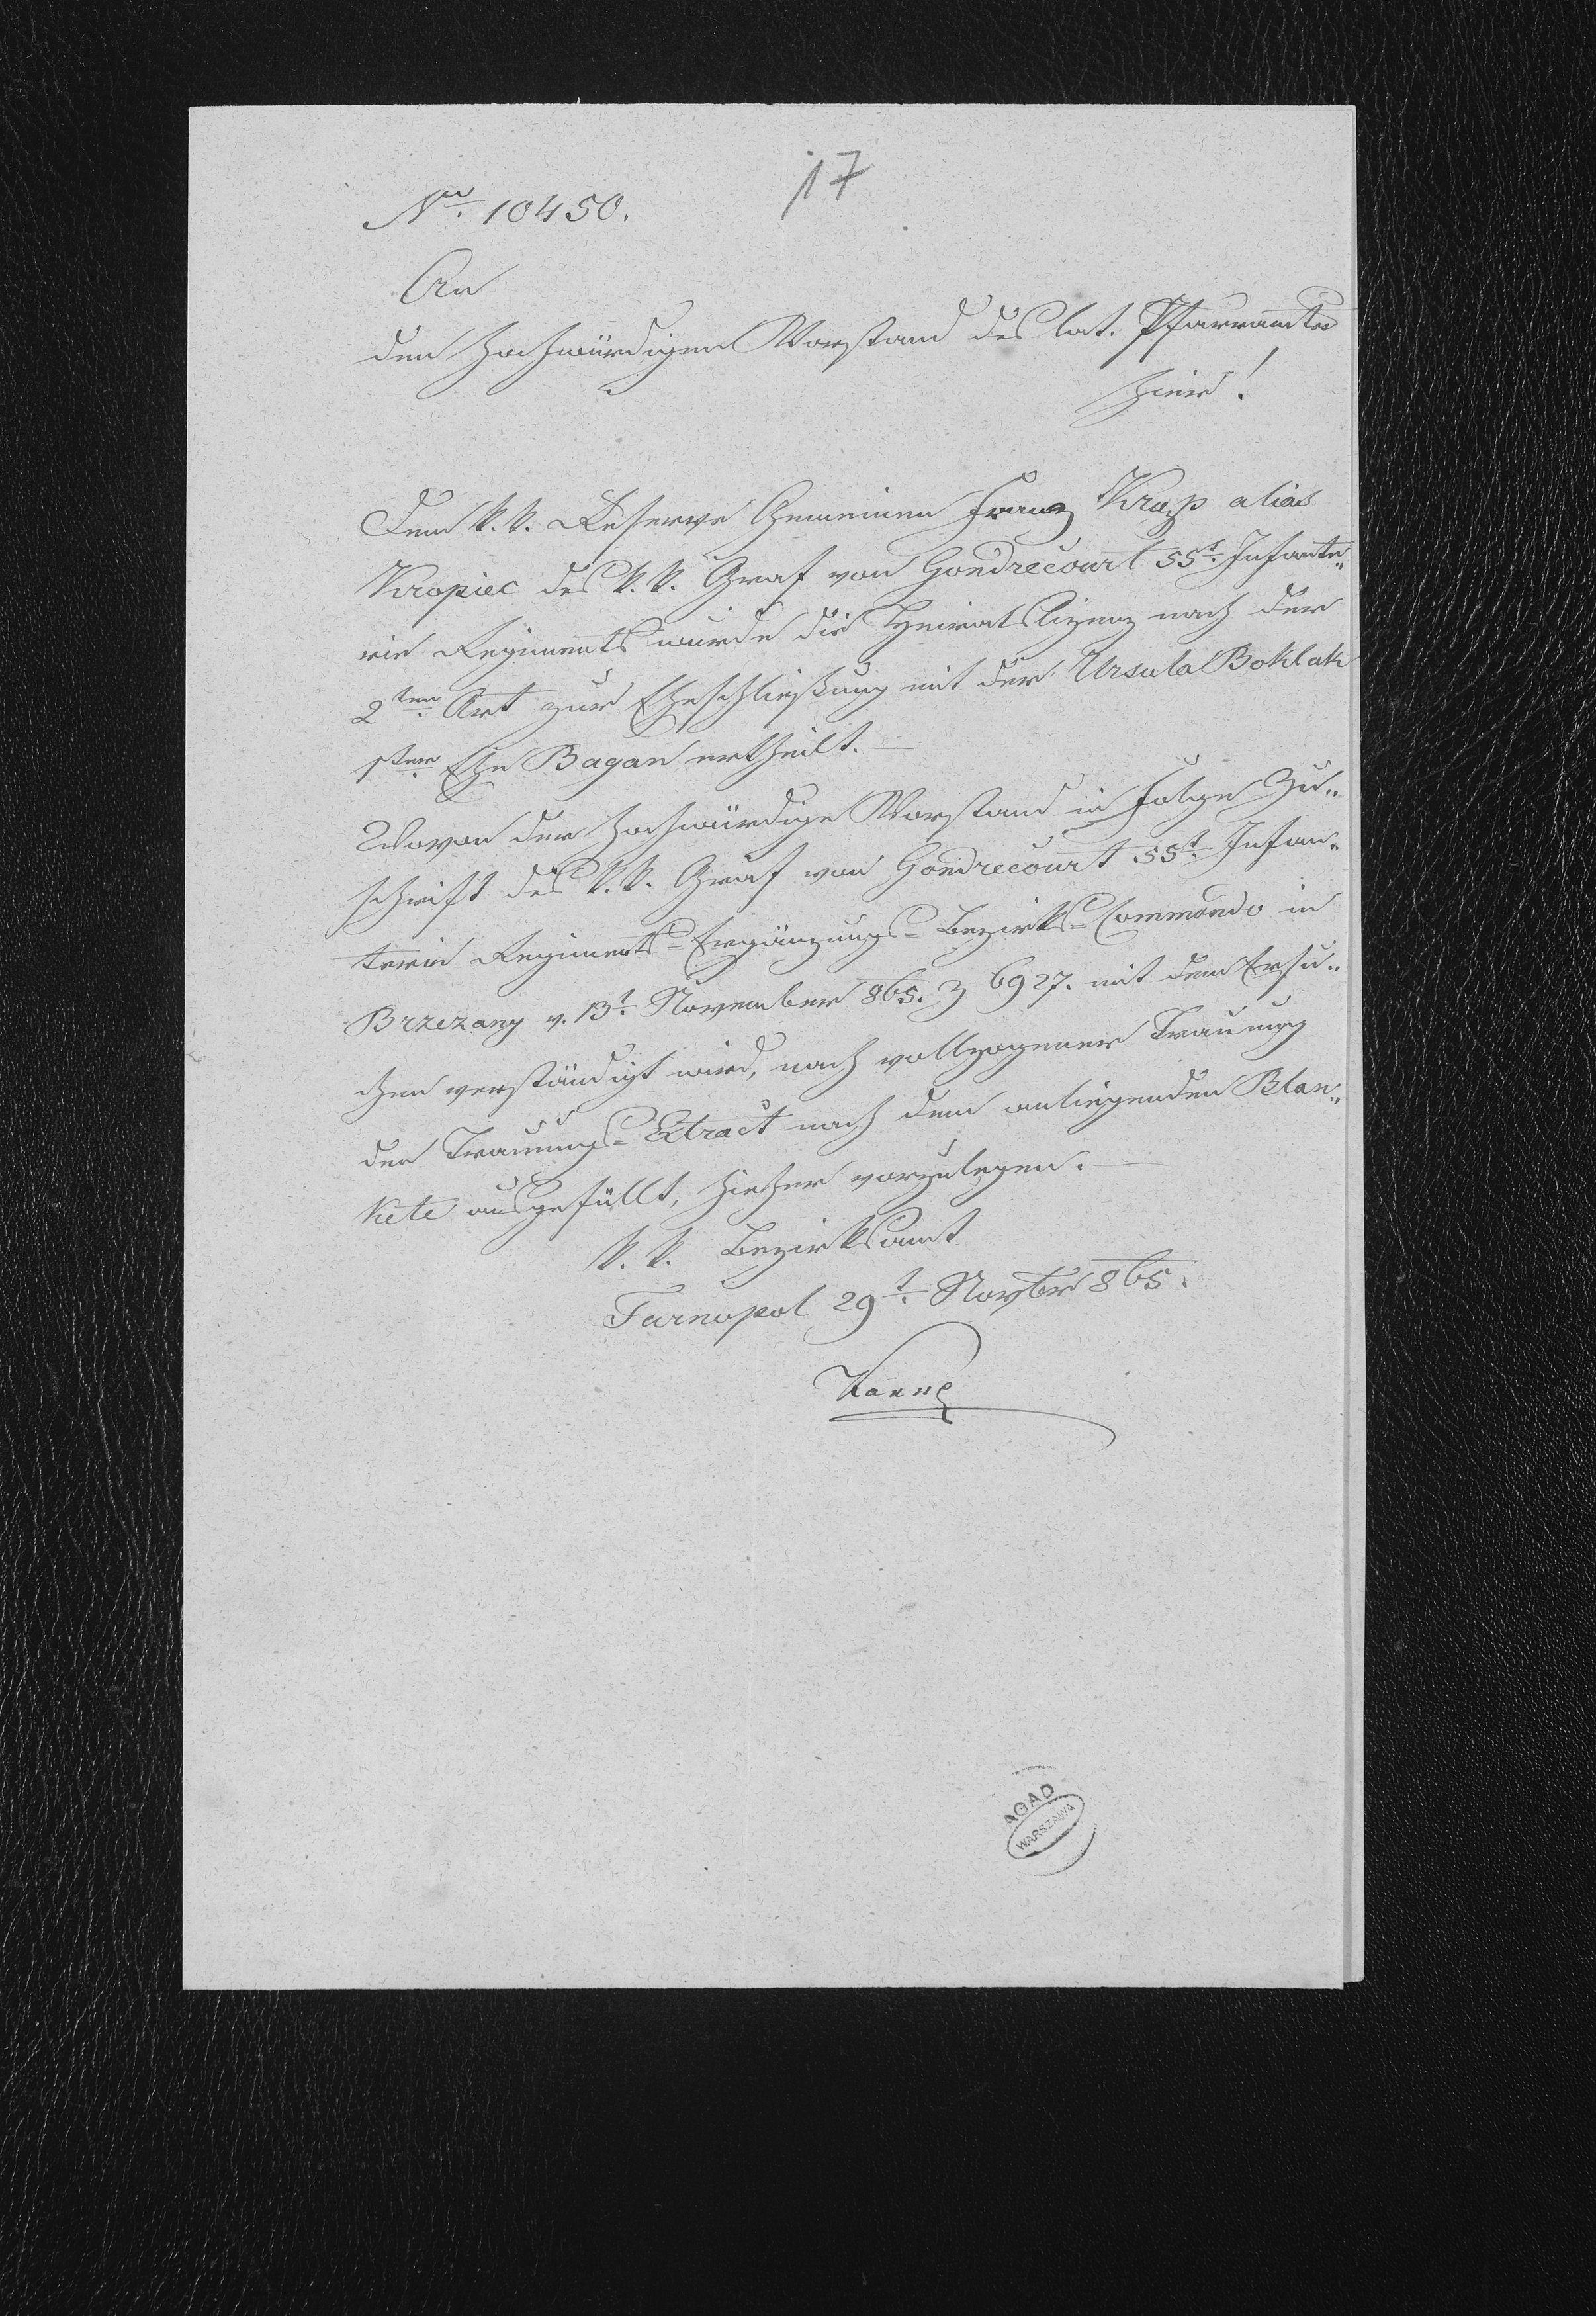 17
Nro. 10450.
An
den hochwürdigen Vorstand des lat. Pfarramtes
hier!
Dem k. k. Reserve Gemeinen Franz Krup alias
Kropiec des k. k. Graf von Gondrecourt 55t. Infante„
rie Regiments wurde die Heiratslizenz nach der
2ten Art zur Eheschließung mit der Ursula Boklak
1ster Ehe Bagan ertheilt.—
Wovon der hochwürdige Vorstand in Folge Zu„
schrift des k. k. Graf von Gondrecourt 55t. Infan„
terie Regiments=Ergänzungs=Bezirks=Commando in
Brzezany v. 13t. November 865. Z 6927. mit dem Ersu„
chen verständigt wird, nach vollzogener Trauung
den Trauungs=Extract nach dem anliegenden Blan„
kete ausgefüllt, hieher vorzulegen.—
k. k. Bezirksamt
Tarnopol 29t. Novbr 865.
AGAD
WARSZAWA